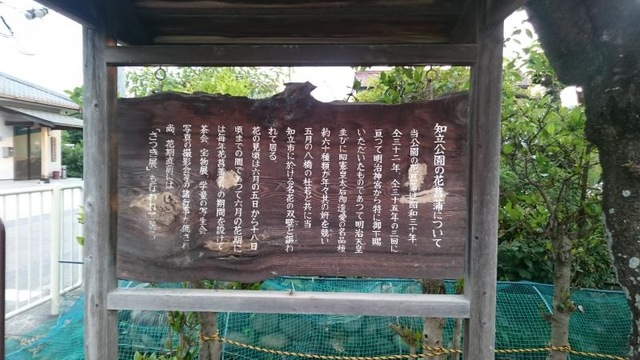 知立公園の花菖蒲について
当公園の花菖蒲は昭和三十年、
全三十二年、全三十五年の三回に
亘って明治神宮から特に御下賜
いただいたものであって明治天皇
並びに昭憲皇太后御遺愛の名品種
約六十種類が年々其の妍を競い
五月の八橋の杜若と共に当
知立市に於ける名花の双璧と謳わ
れて居る。
花の見頃は六月の五日から十八日
頃までの間であって六月の花期に
は毎年花菖蒲の期間を設けて
茶会、宝物展、学童の写生会
写真の撮影会等の諸行事が催され
尚、花期直前には
「さつき展」も行なわれて